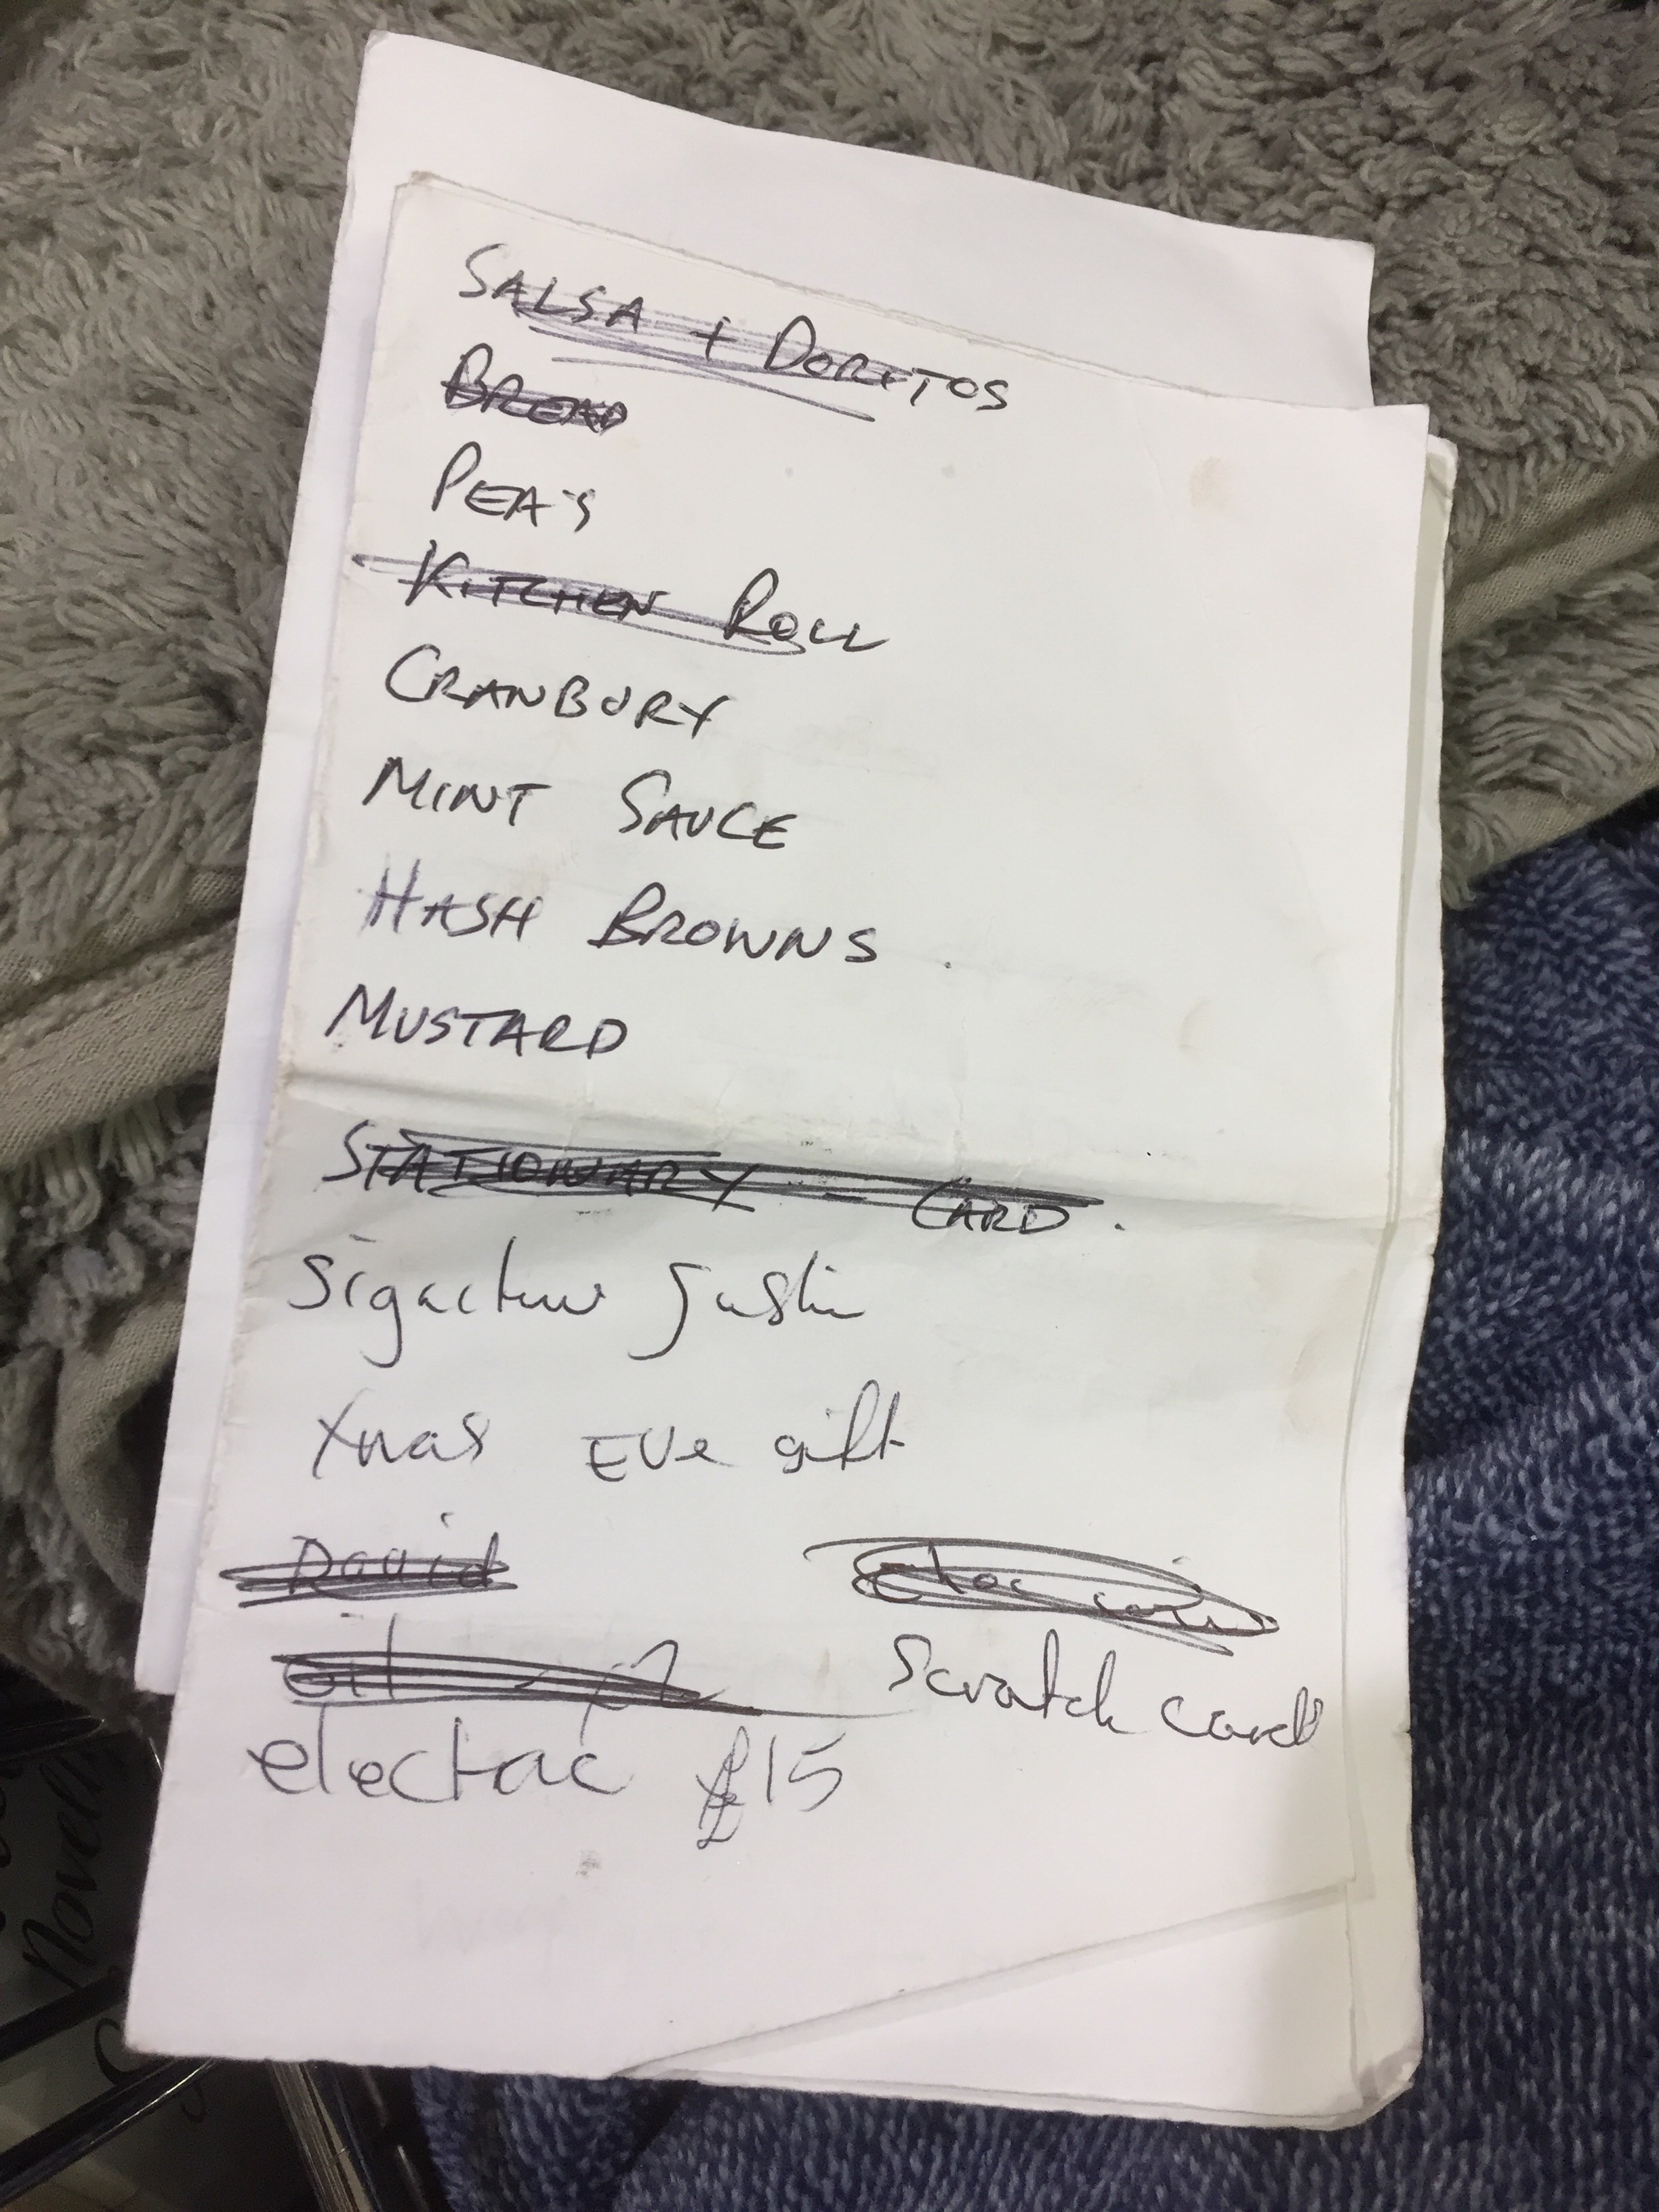 SALSA + DORITOS
BREAD
PEA'S
KITCHEN ROLL
CRANBURY
MINT SAUCE
HASH BROWNS .
MUSTARD
STATIONARY - CARD .
Justin
Xmas EVE gift
David
Scratch card
£15
Novel